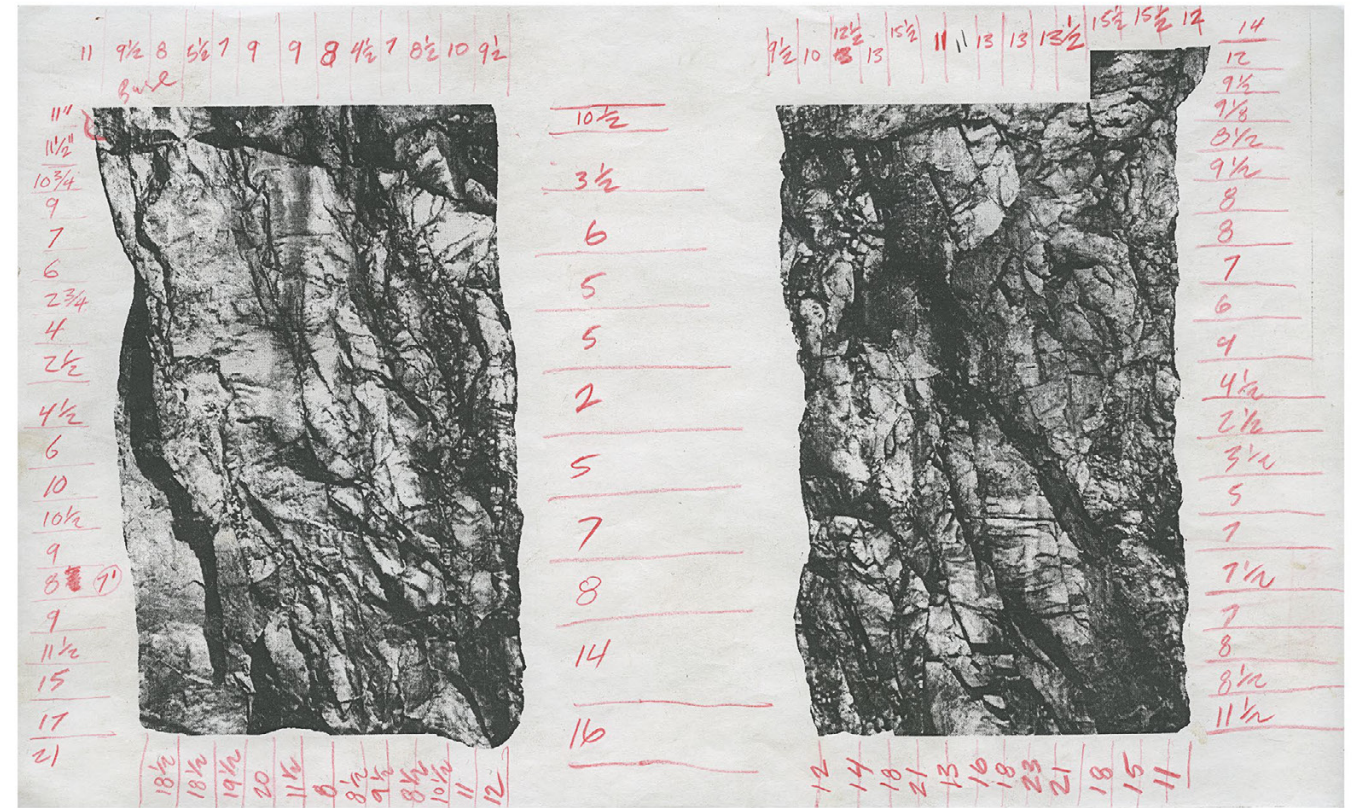 11 9½ 8 5½ 7 9 9 8 4½ 7 8½ 10 9½
11"
11½"
10¾
9
7
6
2¾
4
2½
4½
6
10
10½
9
8 7'
9
11½
15
17
21
18½ 18½ 19½ 20 11½ 8 8½ 9½ 8½ 10½ 11 12
10½
3½
6
5
5
2
5
7
8
14
16
9½ 10 12½ 13 15½ 11 11 13 13 13½ 15½ 15½ 12
14
12
9½
9⅛
8½
9½
8
8
7
6
4½
2½
3½
5
7
7½
7
8
8½
11½
12 14 18 21 13 16 18 23 21 18 15 11